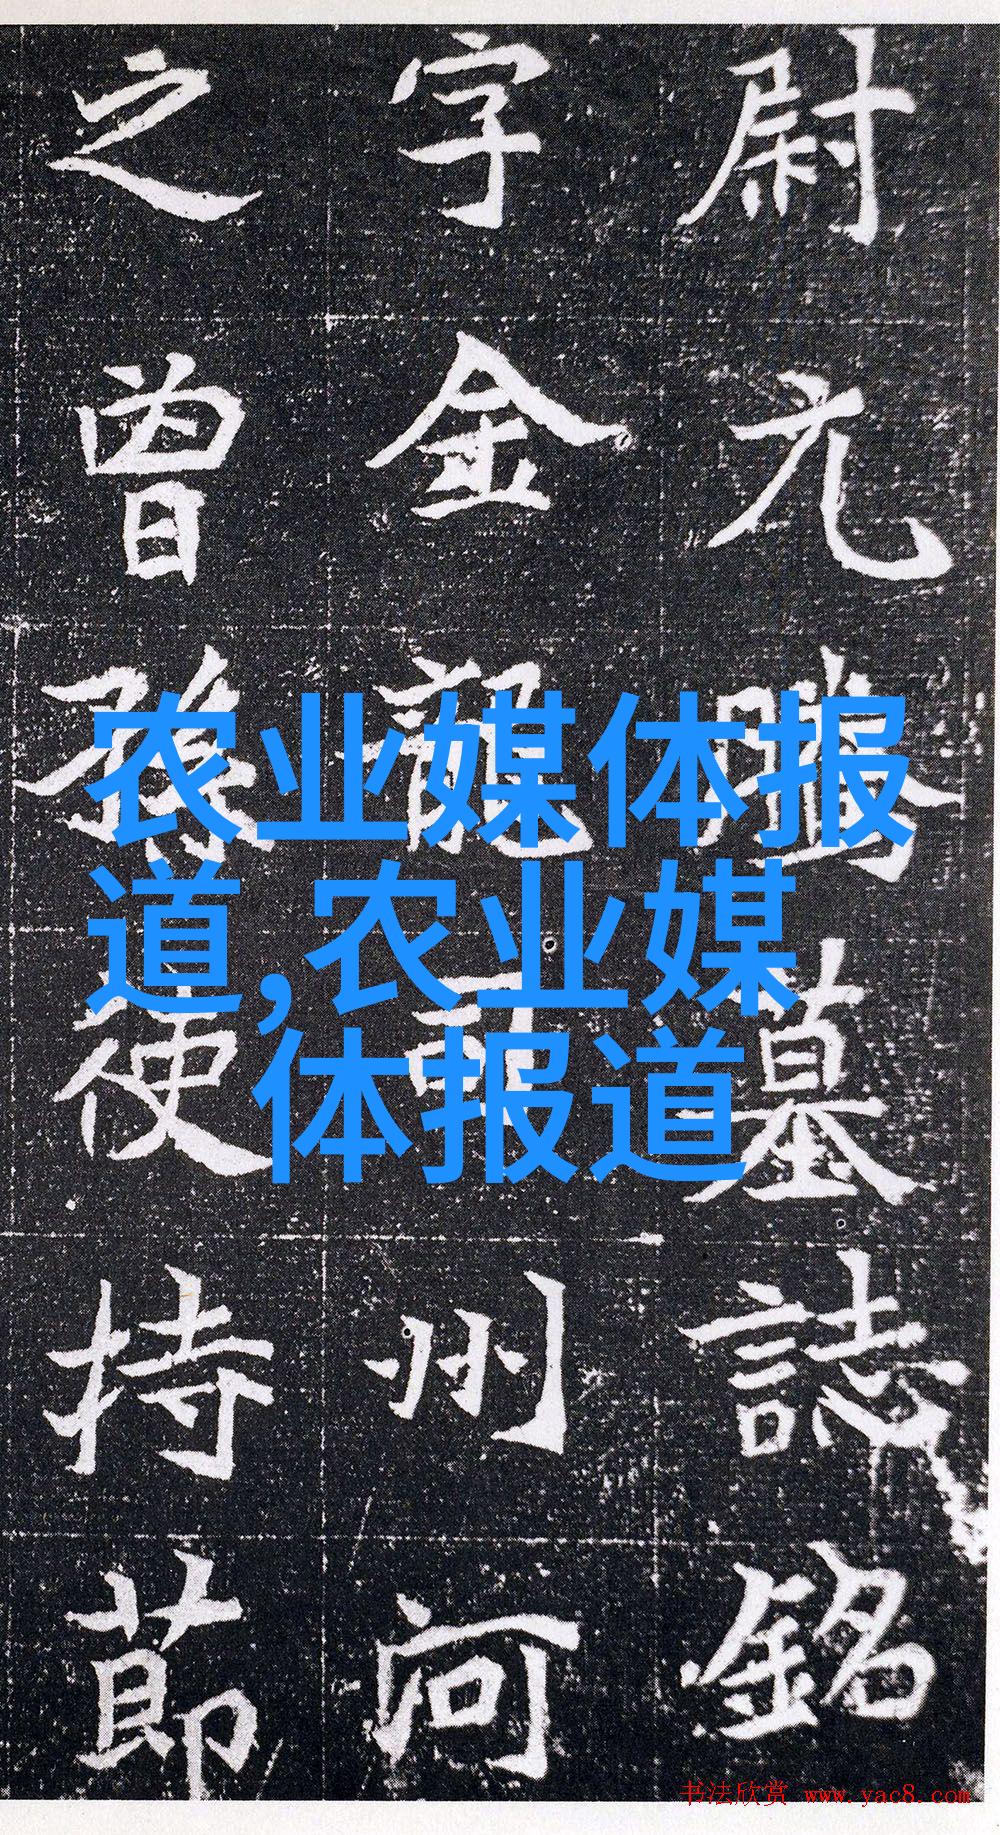 尉元騰墓誌銘
字金龍司州河
之曾孫使持節
农业媒体报
道,农业媒
体报道
书法欣赏 www.yac8.com